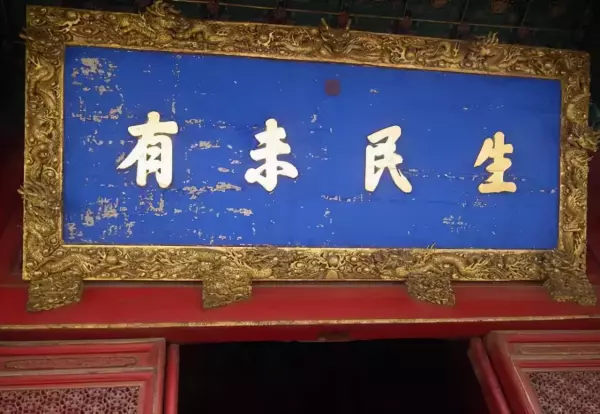 生民未有